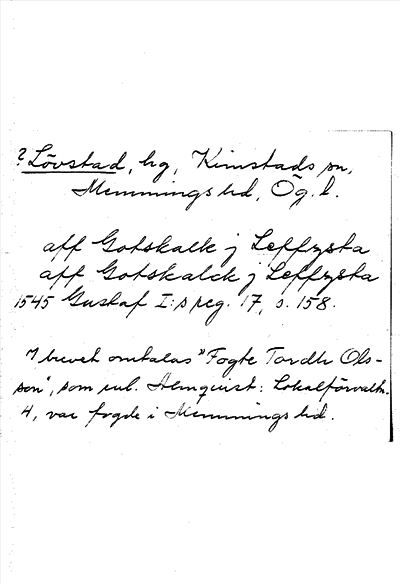 ? Lövstad, hg, Kimstads sn,
Memmings hd, Ög. l.
aff Gotskalk j Leffzsta
aff Gotskalck j Leffzsta
1545 Gustaf I:s reg. 17, s. 158.
I brevet omtalas "Fogte Tordh Ols-
son", som enl. Almquist: Lokalförvaltn.
4, var fogde i Memmings hd.